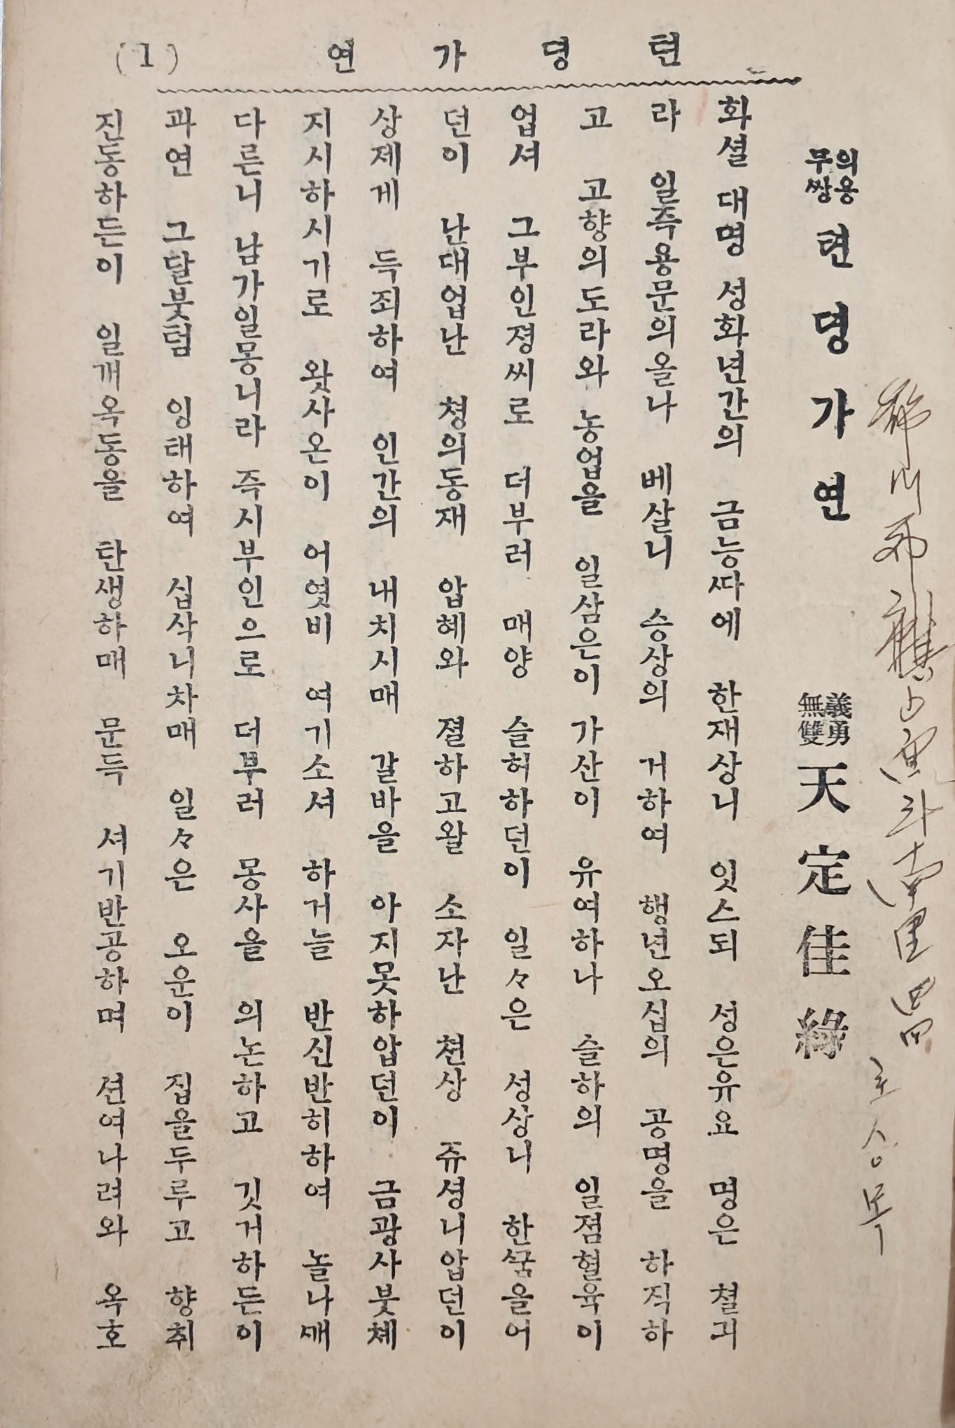 (1) 텬뎡가연
의용무쌍 텬뎡가연 義勇無雙 天定佳緣
화셜 대명 성화년간의 금능ᄯᅡ에 한재상니 잇스되 성은유요 명은 쳘긔
라 일즉용문의올나 베살니 승상의 거하여 행년오십의 공명을 하직하
고 고향의도라와 농업을 일삼은이 가산이 유여하나 슬하의 일졈혈육이
업셔 그부인졍씨로 더부러 매양 슬허하던이 일々은 성상니 한ᄭᅮᆷ을어
던이 난대업난 쳥의동재 압혜와 졀하고왈 소자난 쳔상 쥬셩니압던이
상제게 득죄하여 인간의 내치시매 갈바을 아지못하압던이 금광사붓쳬
지시하시기로 왓사온이 어엿비 여기소셔 하거늘 반신반히하여 놀나ᄭᅢ
다른니 남가일몽니라 즉시부인으로 더부러 몽사을 의논하고 깃거하든이
과연 그달붓텀 잉태하여 십삭니차매 일々은 오운이 집을두루고 향취
진동하든이 일개옥동을 탄생하매 문득 셔기반공하며 션여나려와 옥호